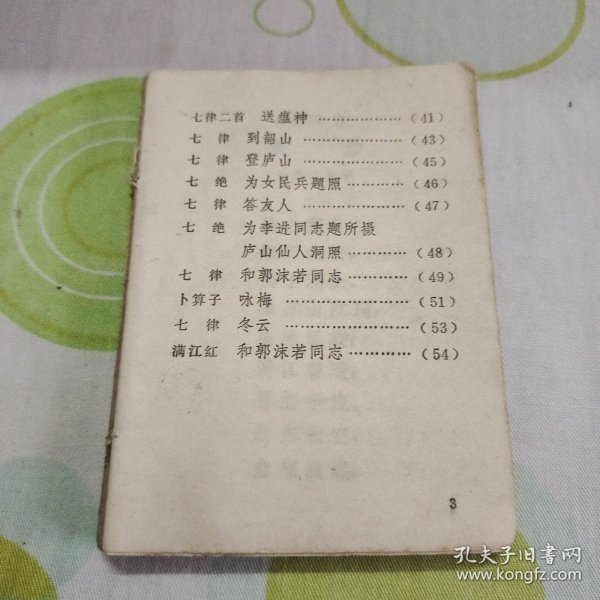 七律二首 送瘟神 ………………（41）
七 律 到韶山 ………………（43）
七 律 登庐山 ………………（45）
七 绝 为女民兵题照 …………（46）
七 律 答友人 ………………（47）
七 绝 为李进同志题所摄
庐山仙人洞照 …………（48）
七 律 和郭沫若同志 …………（49）
卜算子 咏梅 …………………（51）
七 律 冬云 …………………（53）
满江红 和郭沫若同志 …………（54）
3
孔夫子旧书网
www.kongfz.com